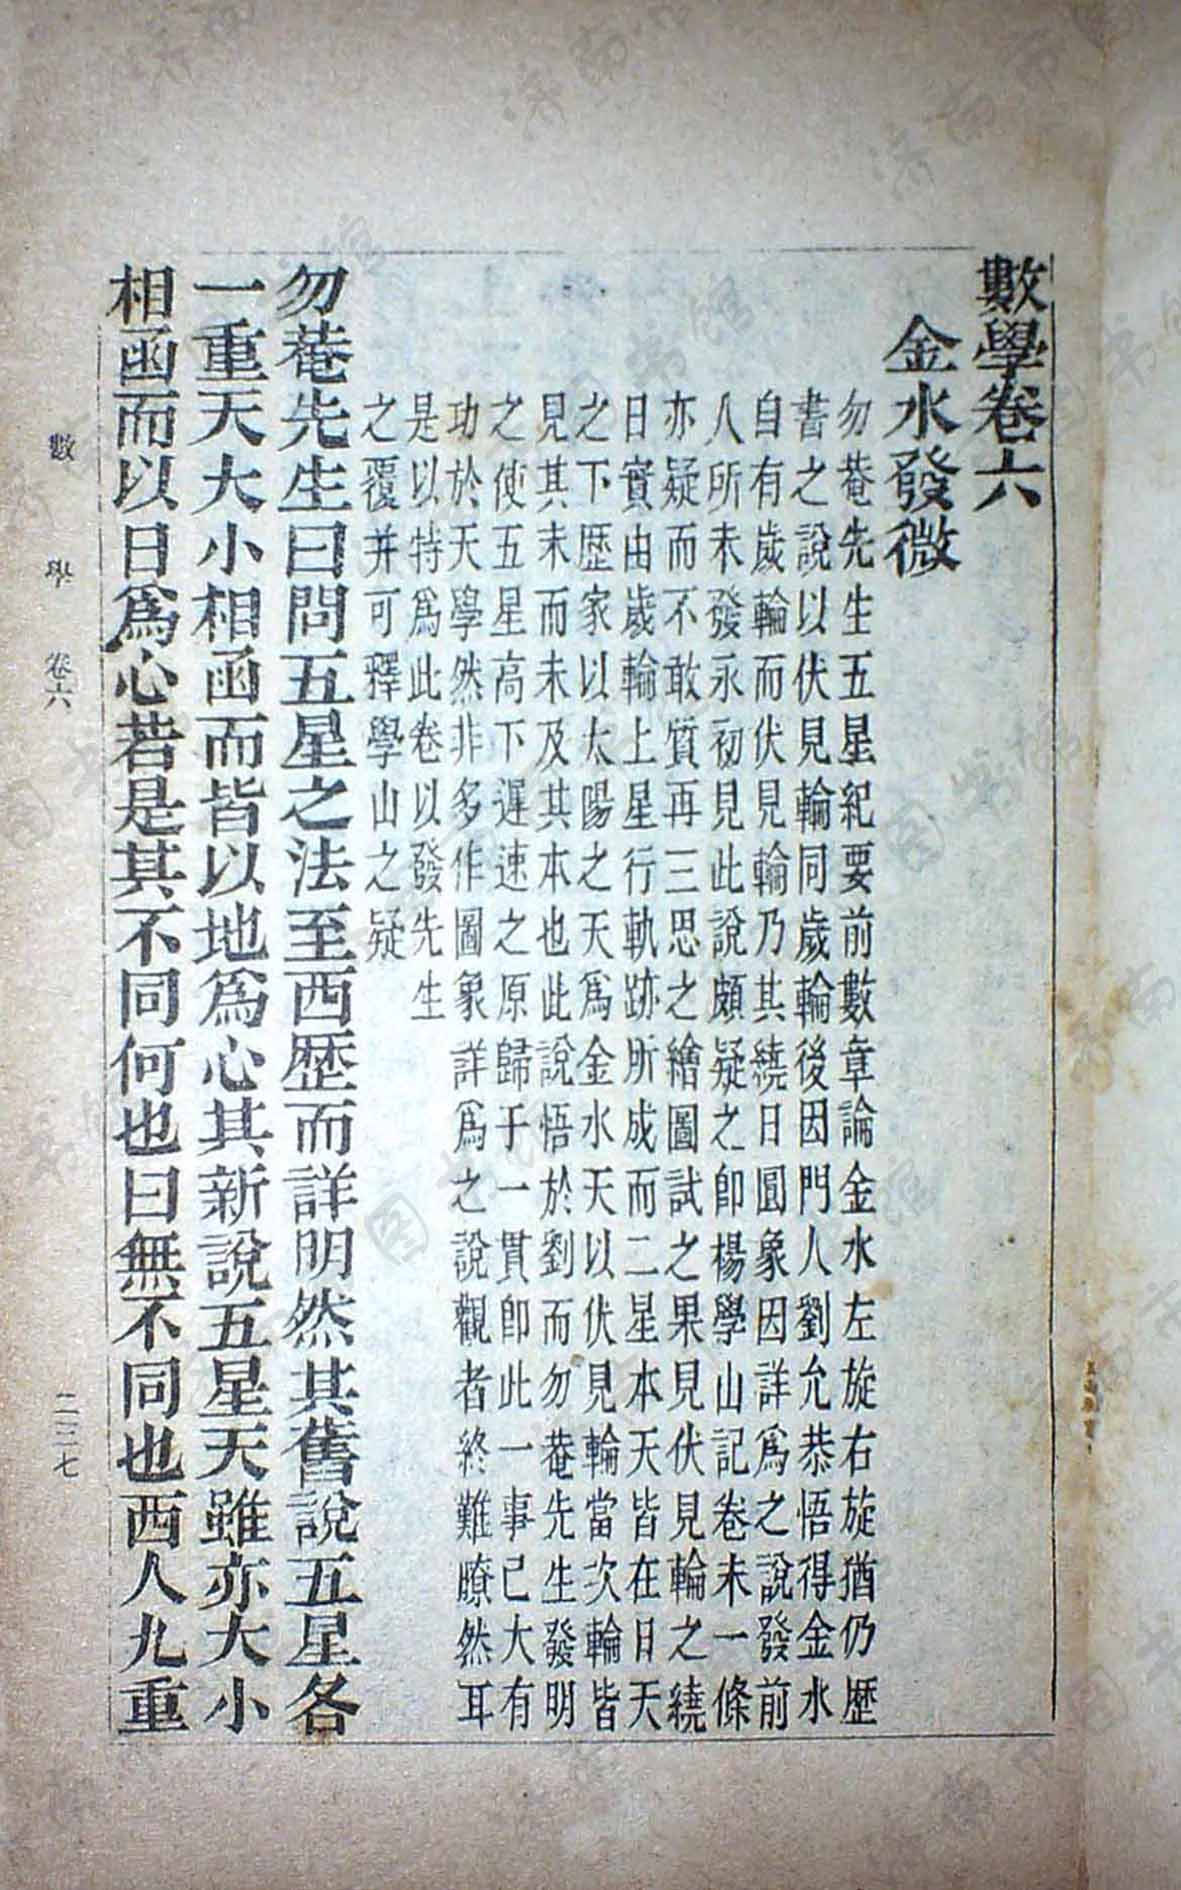 數學卷六
金水發微
勿菴先生五星紀要前數章論金水左旋右旋猶仍歷
書之說以伏見輪同歲輪後因門人劉允恭悟得金水
自有歲輪而伏見輪乃其繞日圓象因詳為之說發前
人所未發永初見此說頗疑之卽楊學山記卷末一條
亦疑而不敢質再三思之繪圖試之果見伏見輪之繞
日實由歲輪上星行軌跡所成而二星本天皆在日天
之下歷家以太陽之天為金水天以伏見輪當次輪皆
見其末而未及其本也此說悟於劉而勿菴先生發明
之使五星高下遲速之原歸于一貫卽此一事已大有
功於天學然非多作圖象詳為之說觀者終難瞭然耳
是以特為此卷以發先生
之覆并可釋學山之疑
勿菴先生曰問五星之法至西歷而詳明然其舊說五星各
一重天大小相函而皆以地為心其新說五星天雖亦大小
相函而以日為心若是其不同何也曰無不同也西人九重
數學 卷六 二二七